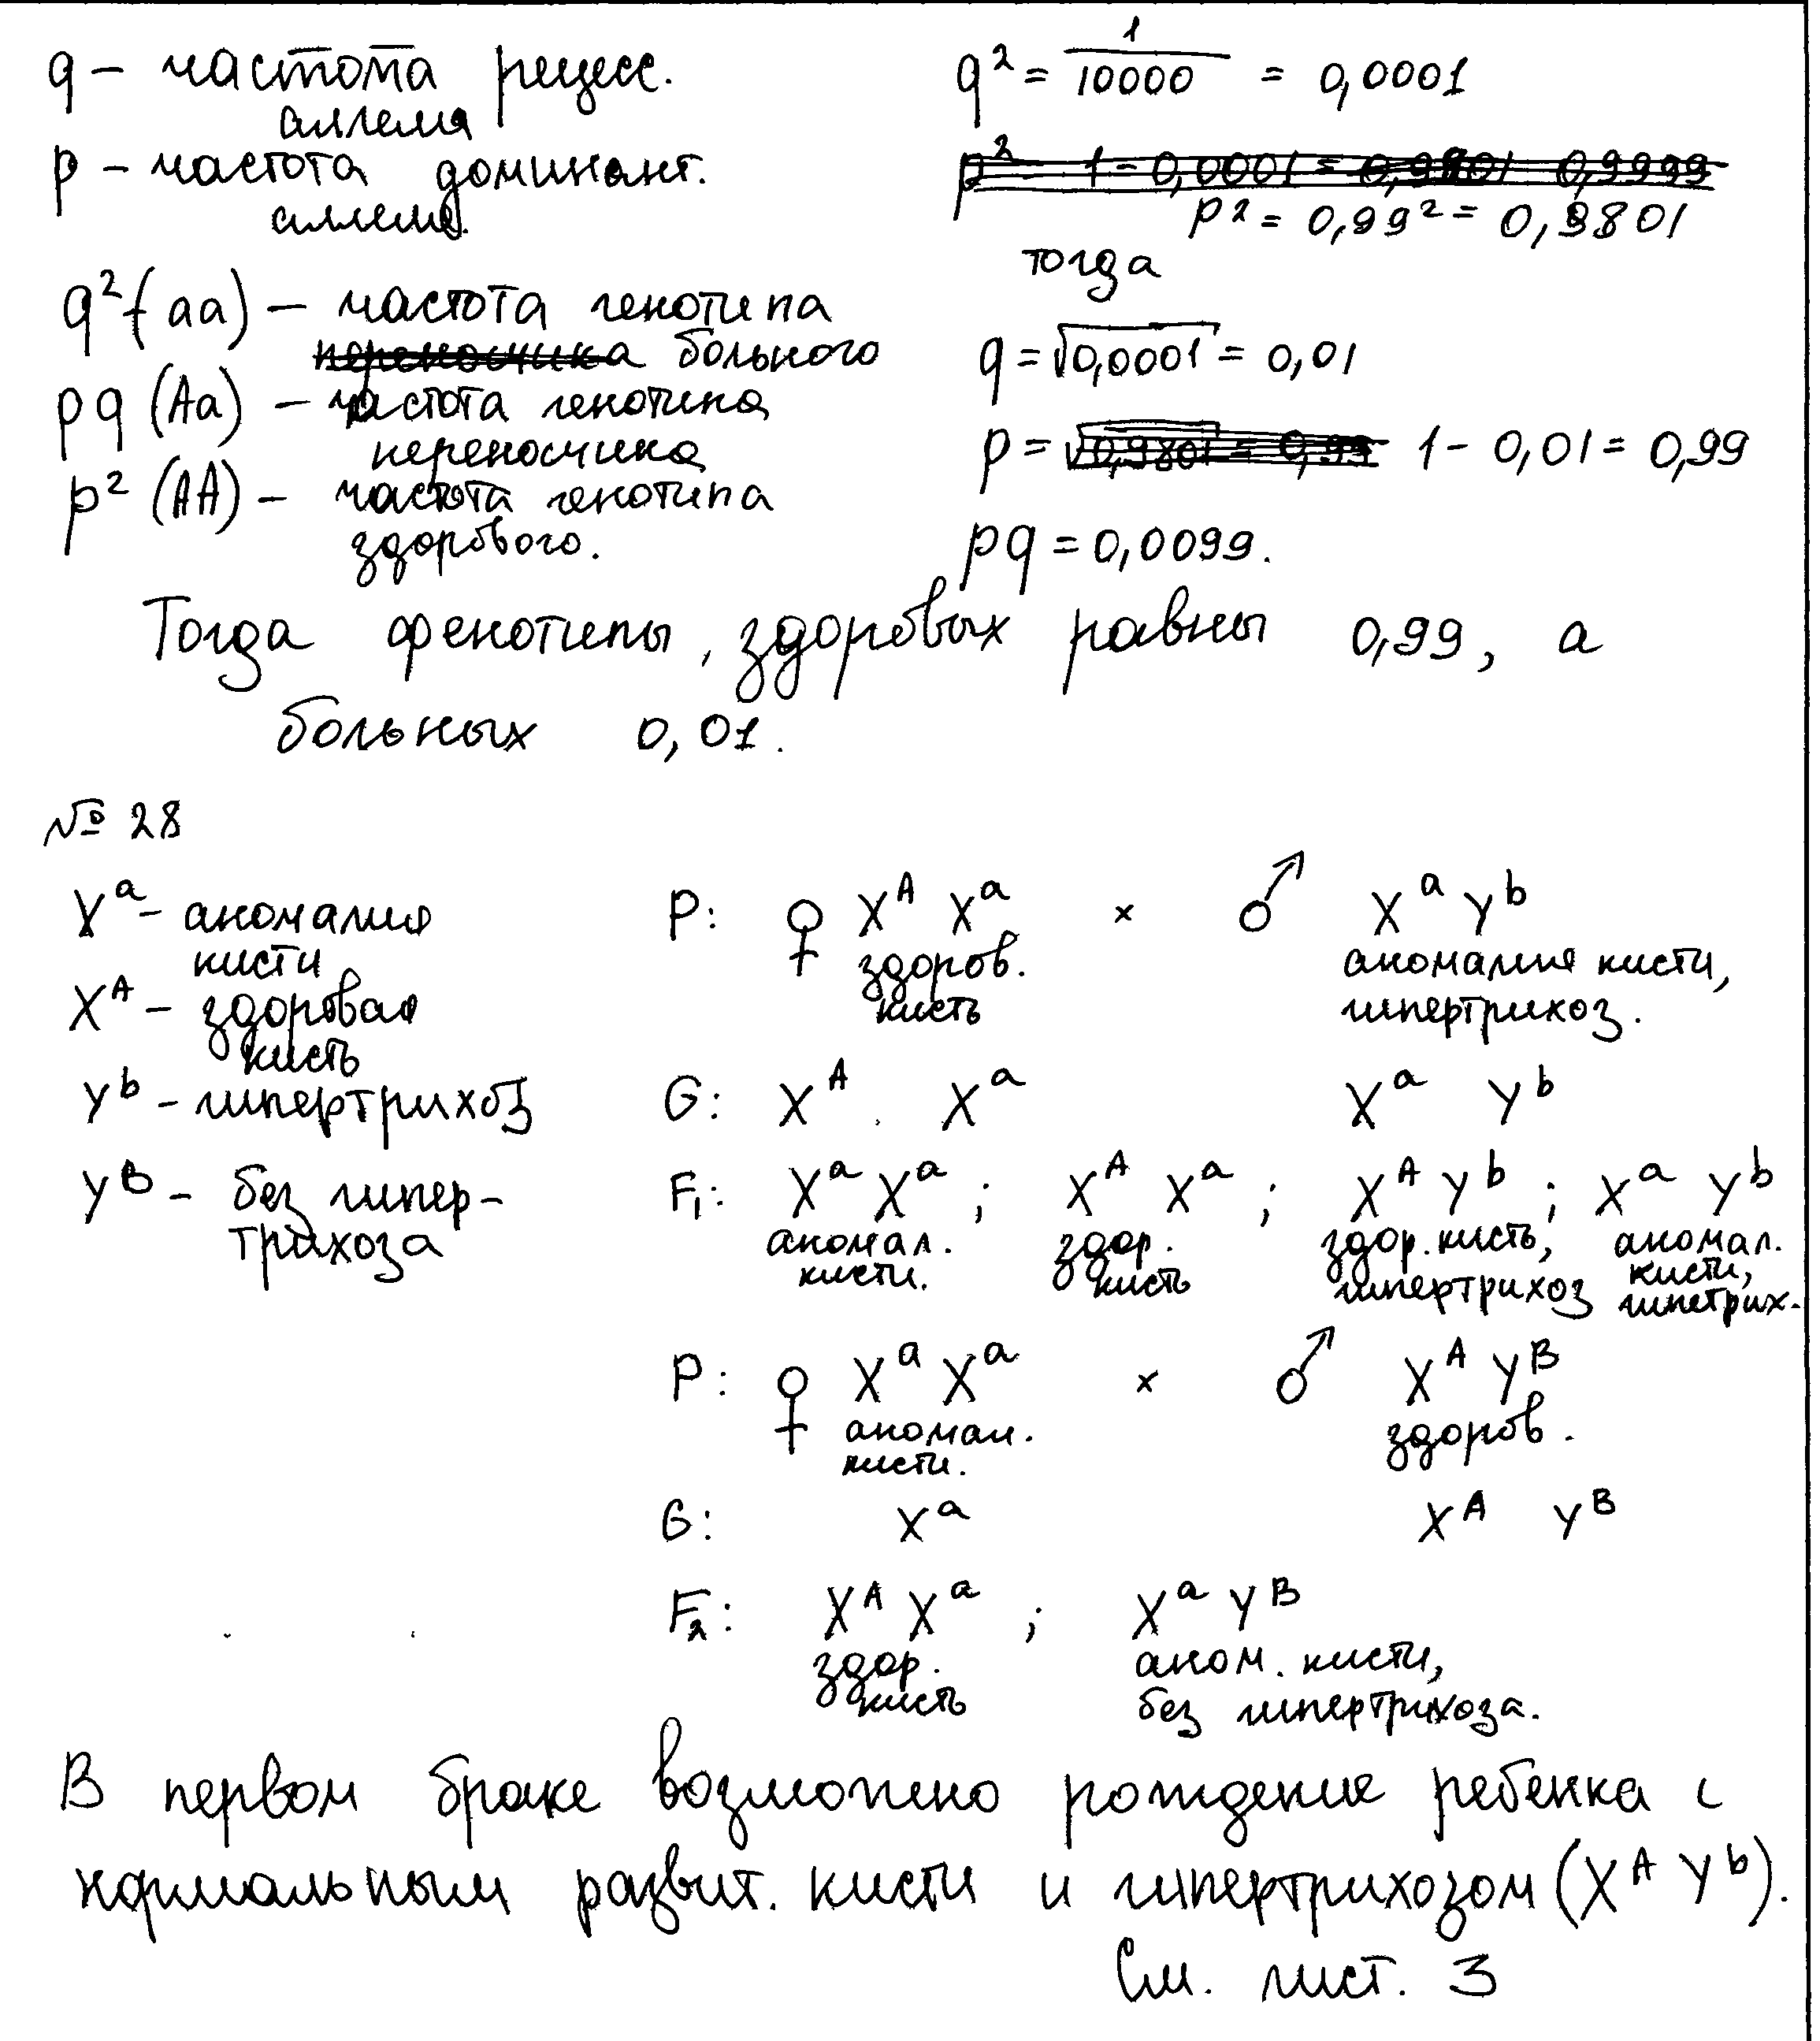 q – частота рецесс.
аллеля
p – частота доминант.
аллеля.
q² (aa) – частота генотипа
больного
pq (Aa) – частота генотипа
переносчика
p² (AA) – частота генотипа
здорового.
q² = 1/10000 = 0,0001
p² = 0,99² = 0,9801
тогда
q = √0,0001 = 0,01
p = 1 - 0,01 = 0,99
pq = 0,0099.
Тогда фенотипы, здоровых равны 0,99, а
больных 0,01.
№ 28
Xᵃ – аномалия
кисти
Xᴬ – здоровая
кисть
Yᵇ – гипертрихоз
Yᴮ – без гипер-
трихоза
P: ♀ Xᴬ Xᵃ × ♂ Xᵃ Yᵇ
здоров. аномалия кисти,
кисть гипертрихоз.
G: Xᴬ Xᵃ Xᵃ Yᵇ
F₁: Xᵃ Xᵃ ; Xᴬ Xᵃ ; Xᴬ Yᵇ ; Xᵃ Yᵇ
аномал. здор. здор. кисть, аномал.
кисти. кисть гипертрихоз кисти,
гипетрих.
P: ♀ Xᵃ Xᵃ × ♂ Xᴬ Yᴮ
аномал. здоров.
кисти.
G: Xᵃ Xᴬ Yᴮ
F₂: Xᴬ Xᵃ ; Xᵃ Yᴮ
здор. аном. кисти,
кисть без гипертрихоза.
В первом браке возможно рождение ребенка с
нормальным развит. кисти и гипертрихозом (Xᴬ Yᵇ).
См. лист. 3